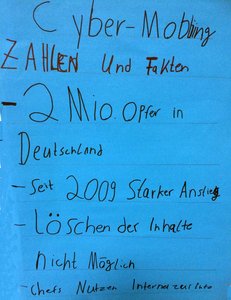 Cyber-Mobbing
ZAHLEN und Fakten
- 2 Mio. Opfer in
Deutschland
- Seit 2009 Starker Anstieg
- Löschen der Inhalte
nicht Möglich
- Chefs Nutzen